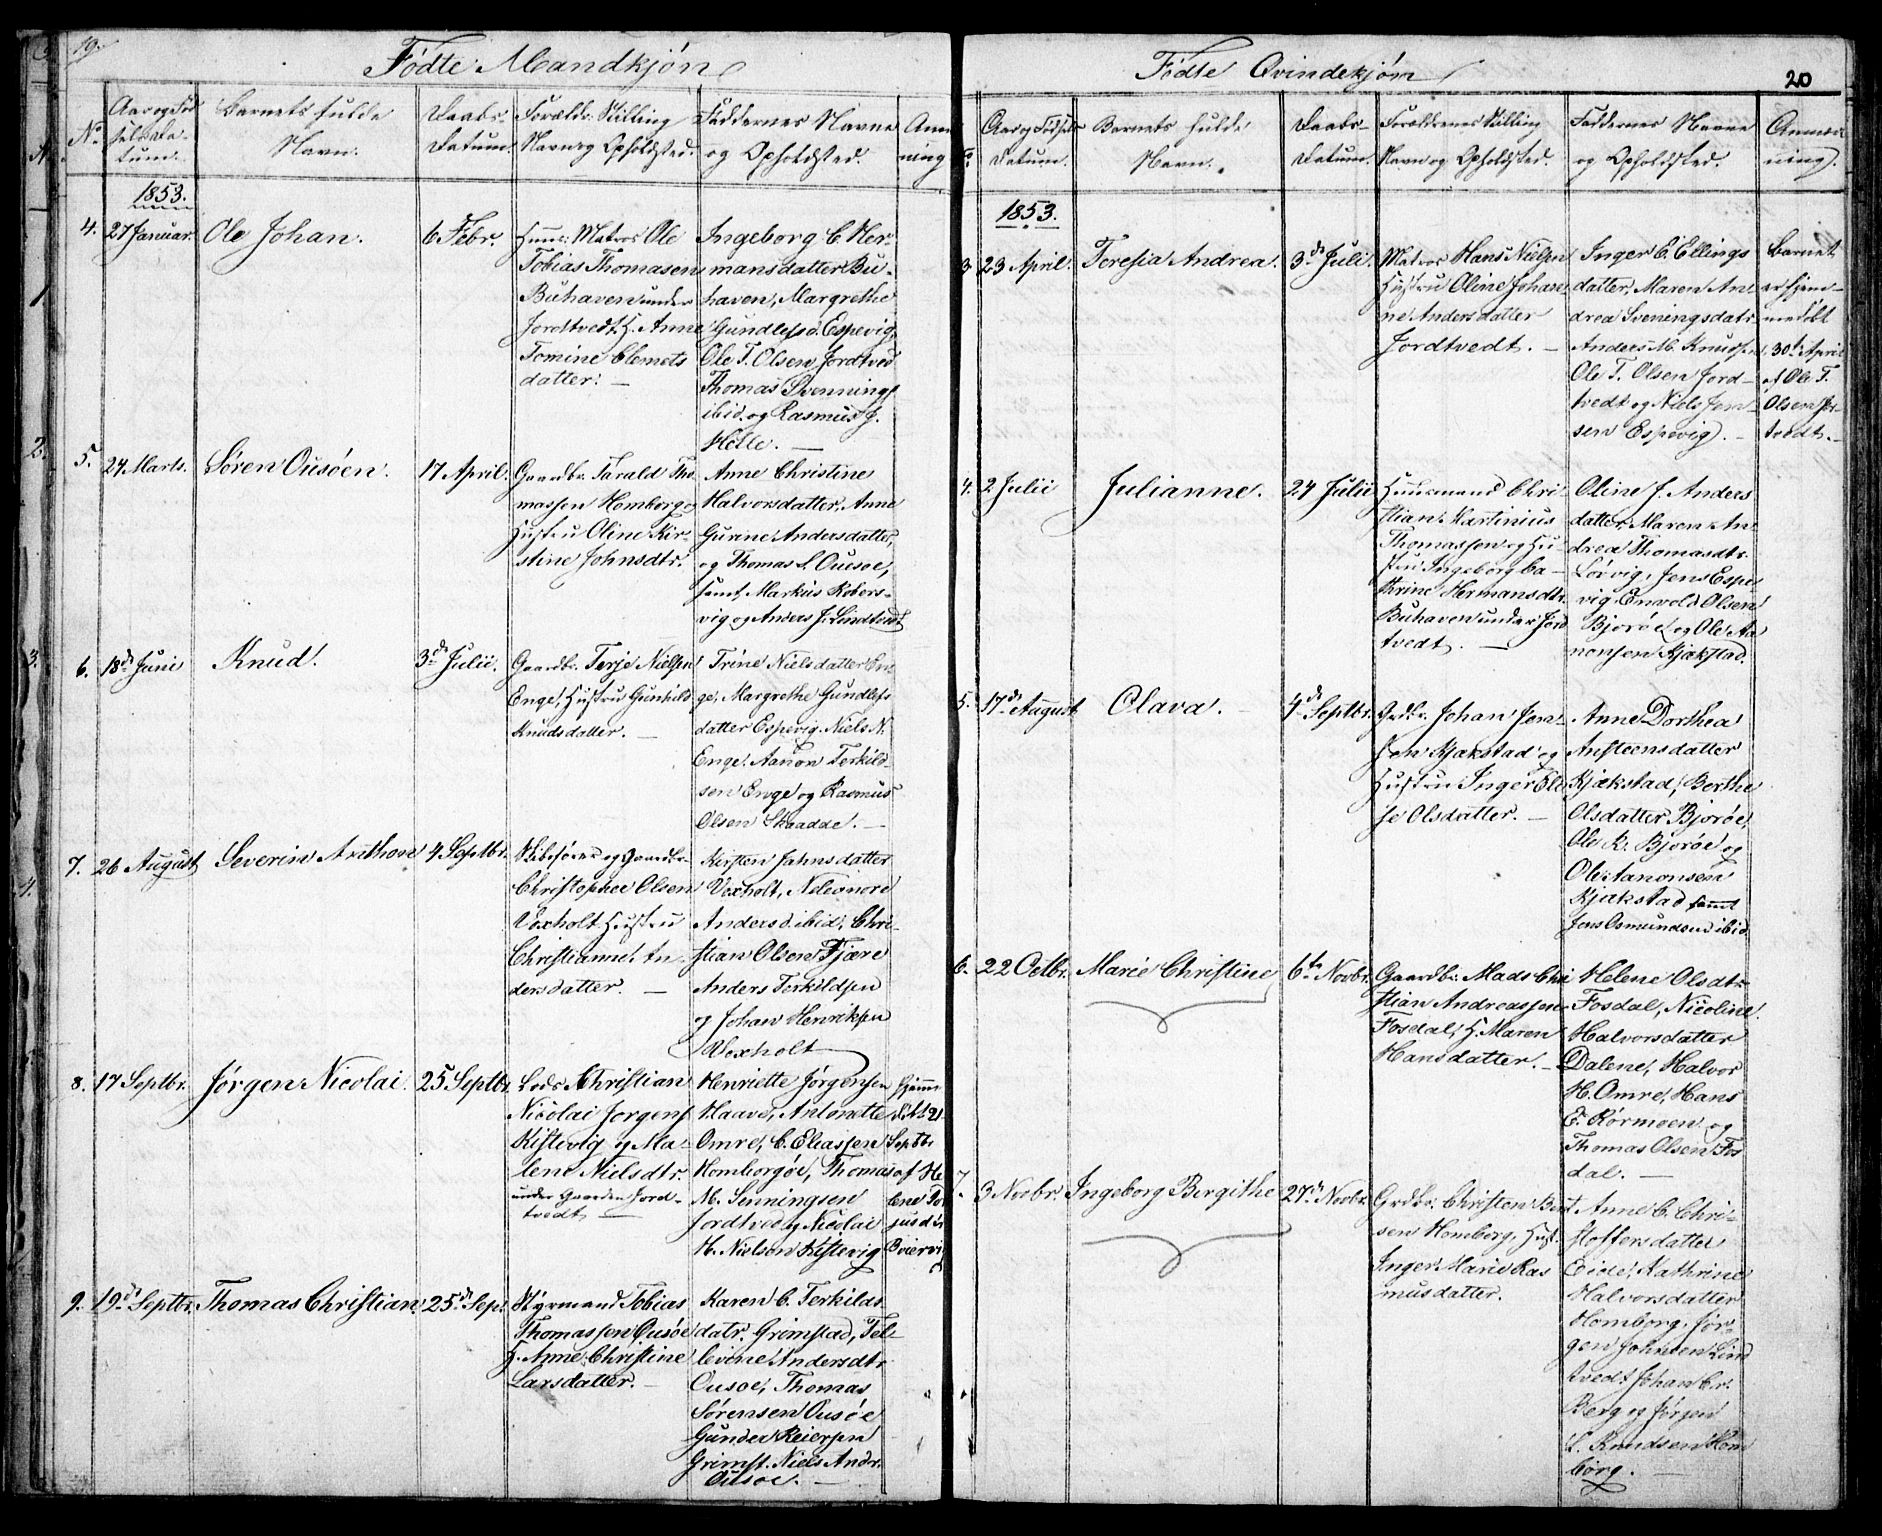 19.
Fødte Mandkjøn
No.
Aar og Fød
selsda-
tum.
Barnets fulde
Navn.
Daabs-
Datum.
Foræld: Stilling
Navn og Opholdsted.
Faddernes Navne
og Opholdsted.
Anm
ning
1853.
4. 27 Januar.
Ole Johan.
6 Febr.
Huusm: Matros Ole
Tobias Thomasen
Buhaven under
Jordtvedt, H. Anne
Tomine Clemets
datter. —
Ingeborg C. Her-
mansdatter Bu-
haven, Margrethe
Gundlefsd. Espevig,
Ole T. Olsen Jordtved
Thomas Svennings
ibid. og Rasmus J.
Helle. —
5. 24 Marts.
Søren Ousøen.
17 April.
Gaardbr. Tarald Tho
massen Homborg og
Hustru Oline Kir-
stine Johnsdtr.
Anne Christine
Halvorsdatter, Anne
Gurine Andersdatter,
og Thomas S. Ouesoe,
samt Markus Kobers-
vig og Anders J. Lindtvedt
6. 18de Juni
Knud.
3de Julii.
Gaardbr. Terje Nielsen
Enge, Hustru Gunhild
Knudsdatter. —
Trine Nielsdatter En-
ge, Margrethe Gundlefs
datter Espevig, Niels N.
Enge, Aanon Terkild-
sen Enge og Rasmus
Olsen Skaadde. —
7. 26 August
Severin Anthon
4 Septbr.
Skibsfører og Gaardbr.
Christopher Olsen
Voxholt Hustru
Christianne An-
dersdatter. —
Kirsten Jahnsdatter
Vexholt, Neleonore
Andersd. ibid, Chri-
stian Olsen Fjære
Anders Terkildsen
og Johan Henriksen
Vexholt
8. 17 Septbr.
Jørgen Nicolai.
25 Septbr.
Lods Christian
Nicolai Jorgens
Kistevig og Ma-
lene Nielsdtr.
under Gaarden Jord-
tvedt —
Henriette Jørgensen
Haave, Antonette
Omre, C. Eliassen
Homborgøe, Thomas
M. Senningsen
Jordtved og Nicolai
H. Nielsen Kistevig
Hjemme
døbt 21
Septbr
af He
lene To
jusdtr
Bviervi
9. 19de Septbr.
Thomas Christian.
25de Sept.
Styrmand Tobias
Thomassen Ousøe
H. Anne Christine
Larsdatter. —
Karen C. Terkilds
datr. Grimstad, Tel-
levine Andersdtr.
Ousoe, Thomas
Sørensen Ousøe
Gunder Reiersen
Grimst. Niels Andr.
Ousoe. —
Fødte Qvindekjøn
20
Aar og Fødsels
Datum.
Barnets fulde
Navn.
Daabs-
Datum.
Forældrenes Stilling
Navn og Opholdsted.
Faddernes Navne
og Opholdsted.
Anmær
ning.
1853.
3 23 April.
Teresia Andrea.
3de Juli.
Matros Hans Nielsen
Hustru Oline Johan-
ne Andersdatter
Jordtvedt. —
Inger E. Ellings
datter, Maren An-
drea Sveningsdatr.
Anders M. Knudsen
Ole T. Olsen Jord-
tvedt og Niels Jen-
sen Espevig. —
Barnet
er hjem-
medøbt
30te April
af Ole T.
Olsen Jor-
tvedt. —
4. 2 Julii
Julianne.
24 Julii
Huusmand Chri
stian Martinius
Thomassen og Hu-
stru Ingeborg Ca-
thrine Hermansdtr.
Buhaven under Jord
tvedt. —
Oline J. Anders
datter, Maren An-
drea Thomasdtr.
Lørvig, Jens Espe
vig, Envold Olsen
Bjorøe, og Ole Aa
nonsen Kjækstad.
5. 17de August
Olava.
4de Septbr.
Grdbr. Johan Jen-
sen Kjækstad og
Hustru Inger Eli
se Olsdatter. —
Anne Dorthea
Ansteensdatter
Kjækstad, Berthe
Olsdatter Bjorøe,
Ole K. Bjorøe og
Ole Aanonsen
Kjækstad samt
Jens Osmundsen ibid
6. 22 Octbr.
Marie Christine
6te Novbr.
Gaardbr. Mads Chri
stian Andreassen
Fosdal, H. Maren
Hansdatter. —
Helene Olsdtr.
Fosdal, Nicoline
Halvorsdatter
Dalene, Halvor
H. Omre, Hans
E. Rørmoen og
Thomas Olsen Fos
dal. —
7. 3 Novbr.
Ingeborg Bergithe
27de Novbr.
Grdbr. Christen Bent
sen Homborg, Hust.
Inger Marie Ras
musdatter.
Anne C. Chri-
stoffersdatter
Eide, Kathrine
Halvorsdatter
Homborg, Jør-
gen Johnsen Lind
tvedt Johan Cr.
Berg og Jørgen
C. Knudsen Hom
borg. —